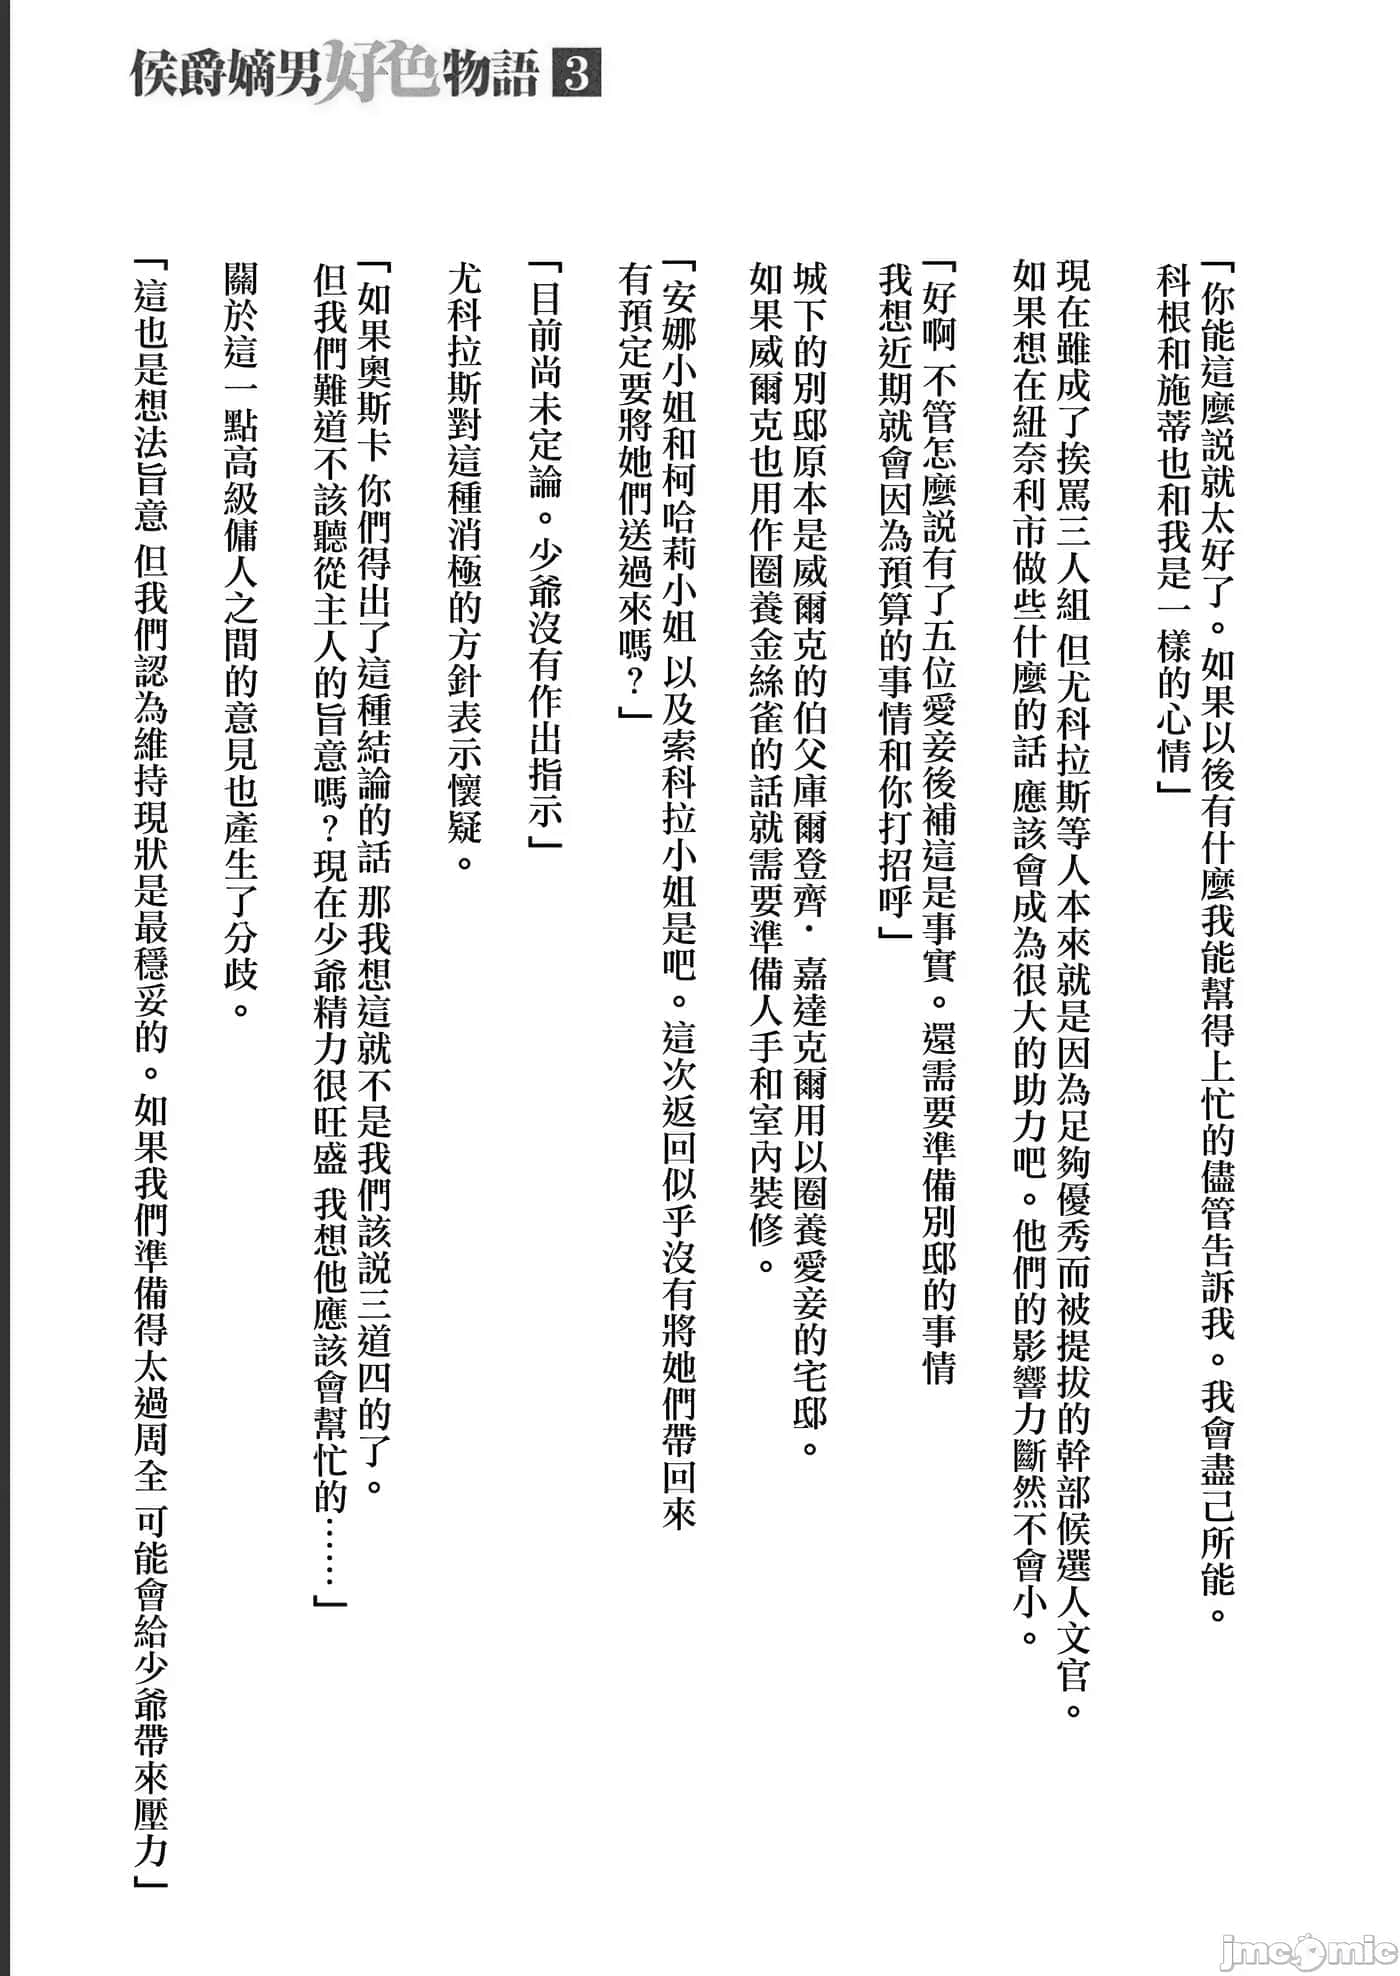 侯爵嫡男好色物語 3
「你能這麼說就太好了。如果以後有什麼我能幫得上忙的儘管告訴我。我會盡己所能。
科根和施蒂也和我是一樣的心情」
現在雖成了挨罵三人組 但尤科拉斯等人本來就是因為足夠優秀而被提拔的幹部候選人文官。
如果想在紐奈利市做些什麼的話 應該會成為很大的助力吧。他們的影響力斷然不會小。
「好啊 不管怎麼說有了五位愛妾後補這是事實。還需要準備別邸的事情
我想近期就會因為預算的事情和你打招呼」
城下的別邸原本是威爾克的伯父庫爾登齊．嘉達克爾用以圈養愛妾的宅邸。
如果威爾克也用作圈養金絲雀的話就需要準備人手和室內裝修。
「安娜小姐和柯哈莉小姐 以及索科拉小姐是吧。這次返回似乎沒有將她們帶回來
有預定要將她們送過來嗎？」
「目前尚未定論。少爺沒有作出指示」
尤科拉斯對這種消極的方針表示懷疑。
「如果奧斯卡 你們得出了這種結論的話 那我想這就不是我們該說三道四的了。
但我們難道不該聽從主人的旨意嗎？現在少爺精力很旺盛 我想他應該會幫忙的……」
關於這一點高級傭人之間的意見也產生了分歧。
「這也是想法旨意 但我們認為維持現狀是最穩妥的。如果我們準備得太過周全 可能會給少爺帶來壓力」
jmcomic